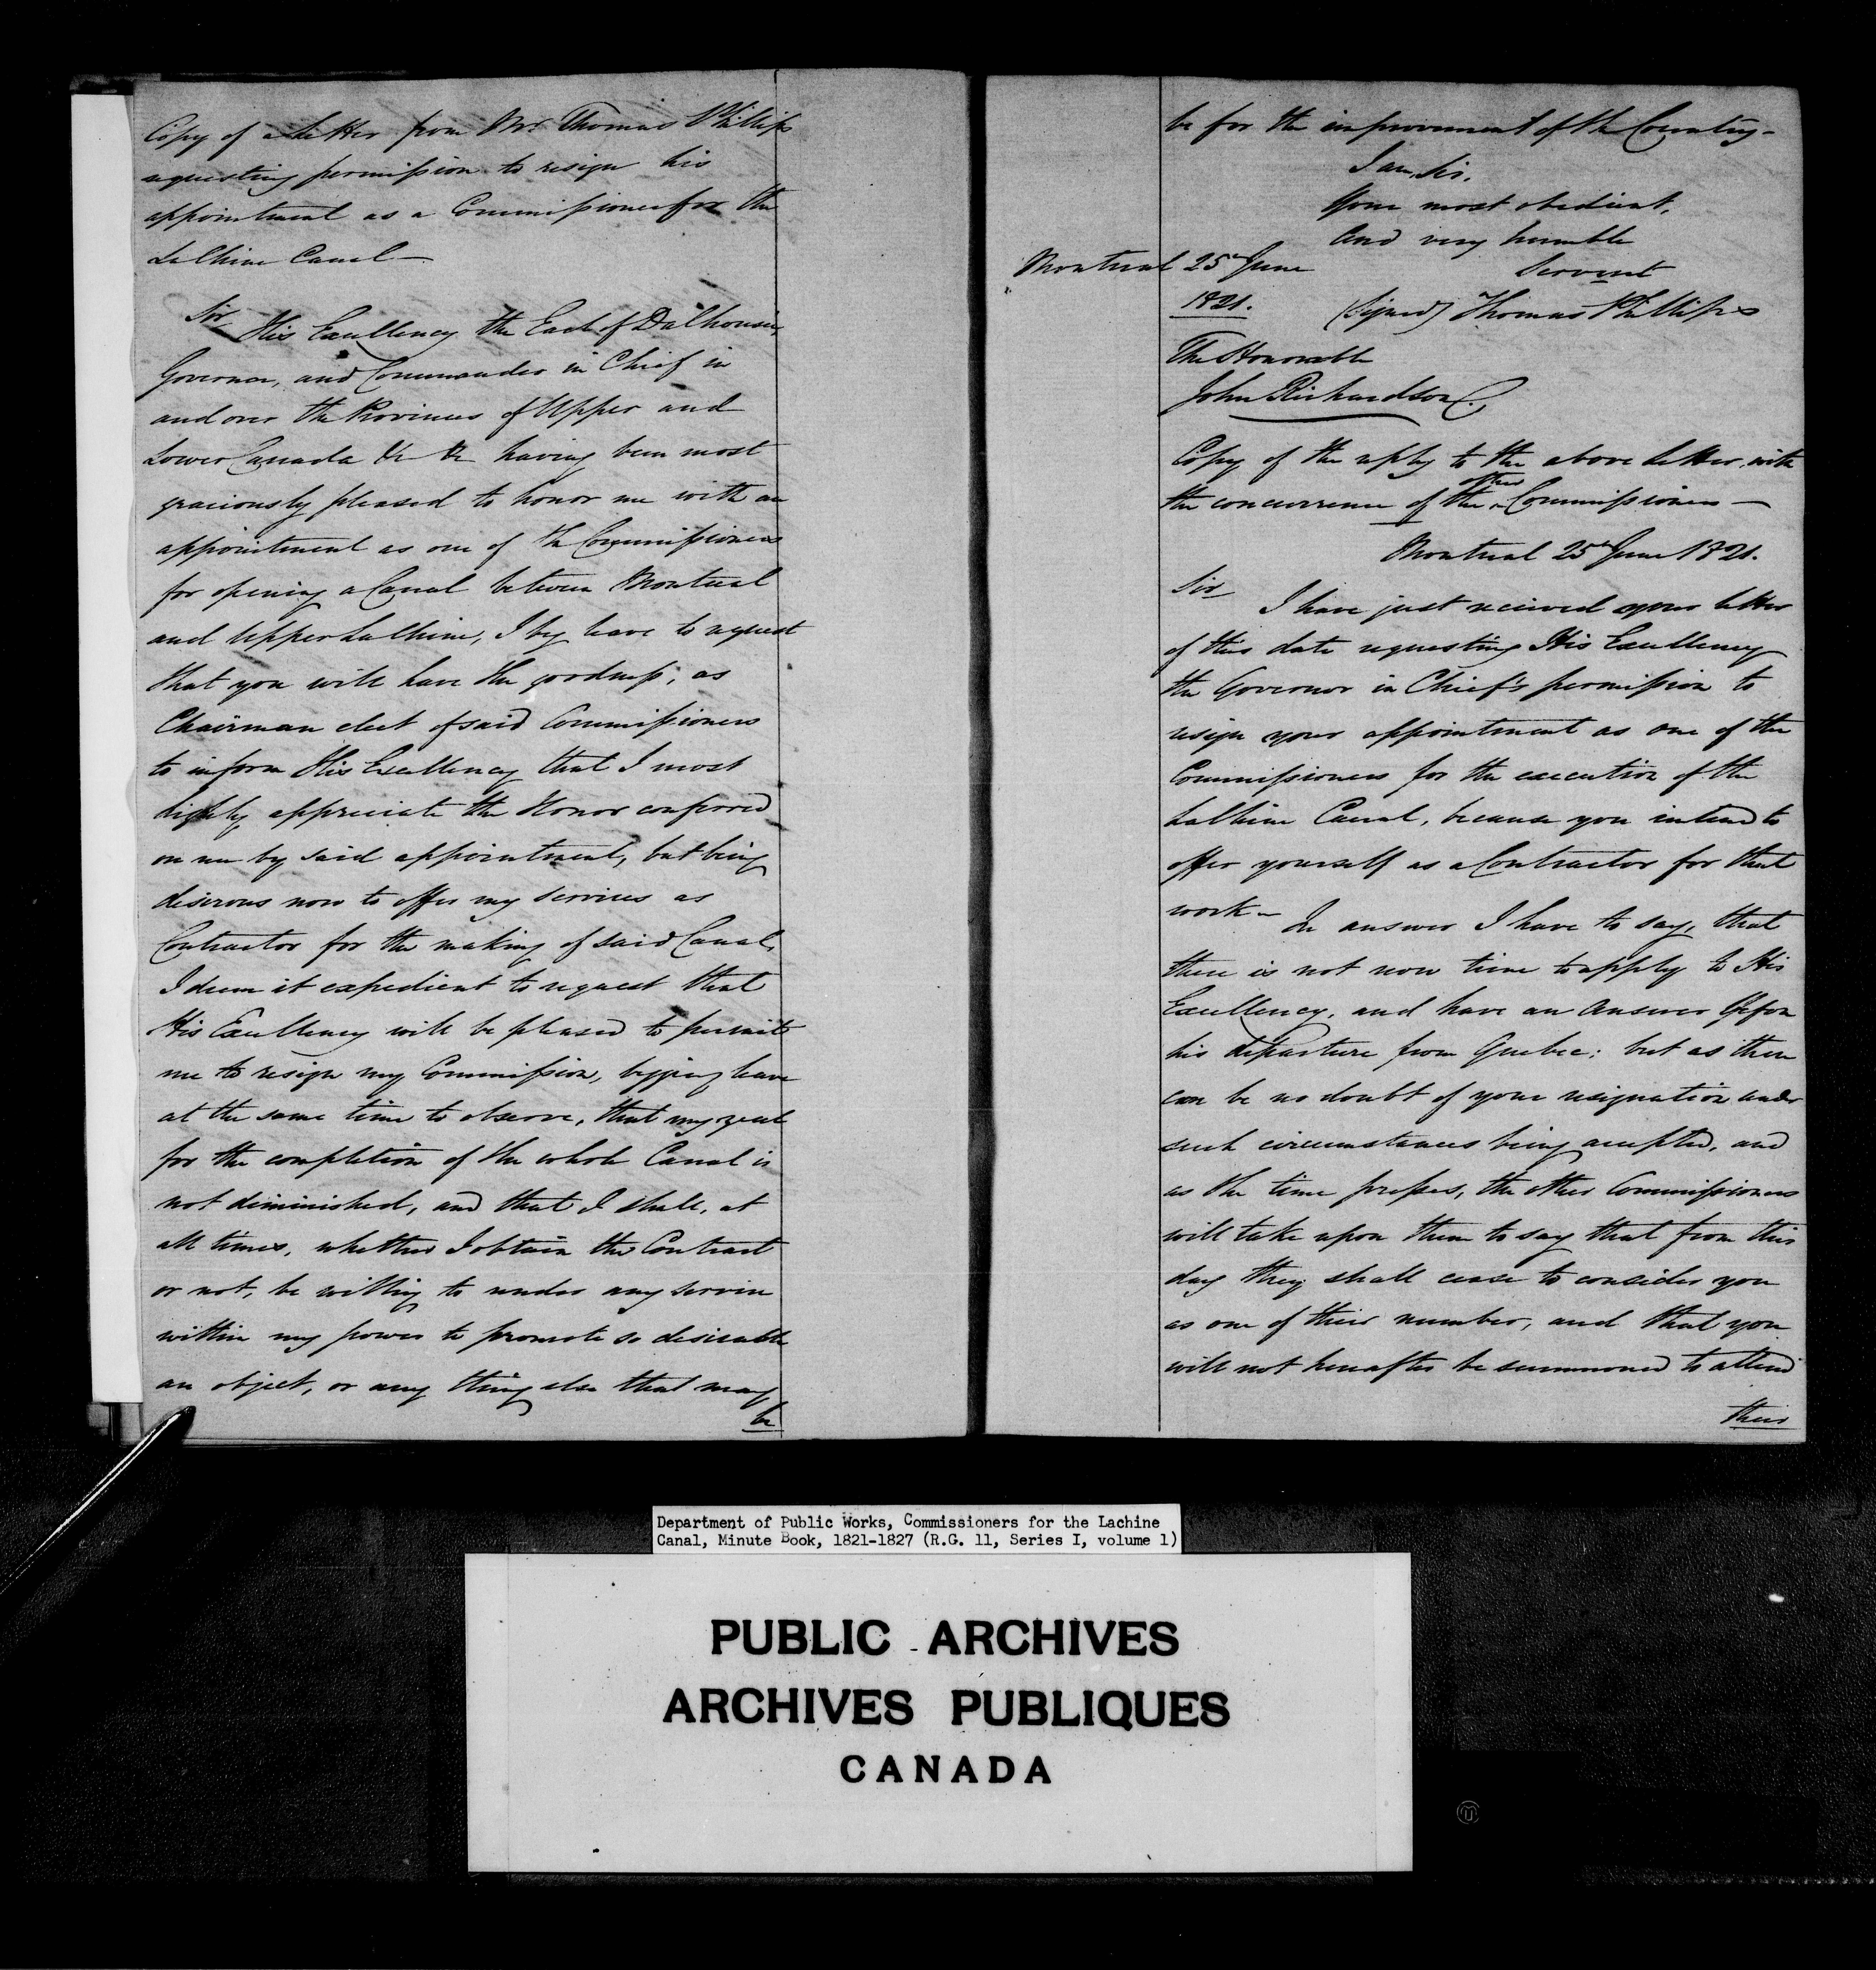 Copy of a Letter from Mr. Thomas Phillips
requesting permission to resign his
appointment as a Commissioner for the
LaChine Canal —
Sir
His Excellency the Earl of Dalhousie,
Governor, and Commander in Chief in
and over the Provinces of Upper and
Lower Canada &c &c having been most
graciously pleased to honor me with an
appointment as one of the Commissioners
for opening a Canal between Montreal
and Upper LaChine, I beg leave to request
that you will have the goodness, as
Chairman elect of said Commissioners
to inform His Excellency that I most
highly appreciate the Honor conferred
on me by said appointment, but being
diserous now to offer my services as
Contractor for the making of said Canal,
I deem it expedient to request that
His Excellency will be pleased to permit
me to resign my Commission, begging leave
at the same time to observe, that my zeal
for the completion of the whole Canal is
not diminished, and that I shall, at
all times, whether I obtain the Contract
or not, be willing to render any service
within my power to promote so desirable
an object, or any thing else that may
be
be for the improvement of the Country –
I am, Sir,
Your most obedient,
And very humble
Servant
Montreal 25th June
1821.
(Signed) Thomas Phillips
The Honorable
John Richardson
Copy of the reply to the above Letter, with
the concurrence of the other Commissioners —
Montreal 25th June 1821.
Sir
I have just received your letter
of this date requesting His Excellency
the Governor in Chief's permission to
resign your appointment as one of the
Commissioners for the execution of the
LaChine Canal, because you intend to
offer yourself as a Contractor for that
work –
In answer I have to say, that
there is not now time to apply to His
Excellency, and have an Answer before
his departure from Quebec: but as there
can be no doubt of your resignation under
such circumstances being accepted, and
as the time presses, the other Commissioners
will take upon them to say that from this
day they shall cease to consider you
as one of their number, and that you
will not hereafter be summoned to attend
their
Department of Public Works, Commissioners for the Lachine
Canal, Minute Book, 1821-1827 (R.G. 11, Series I, volume 1)
PUBLIC ARCHIVES
ARCHIVES PUBLIQUES
CANADA